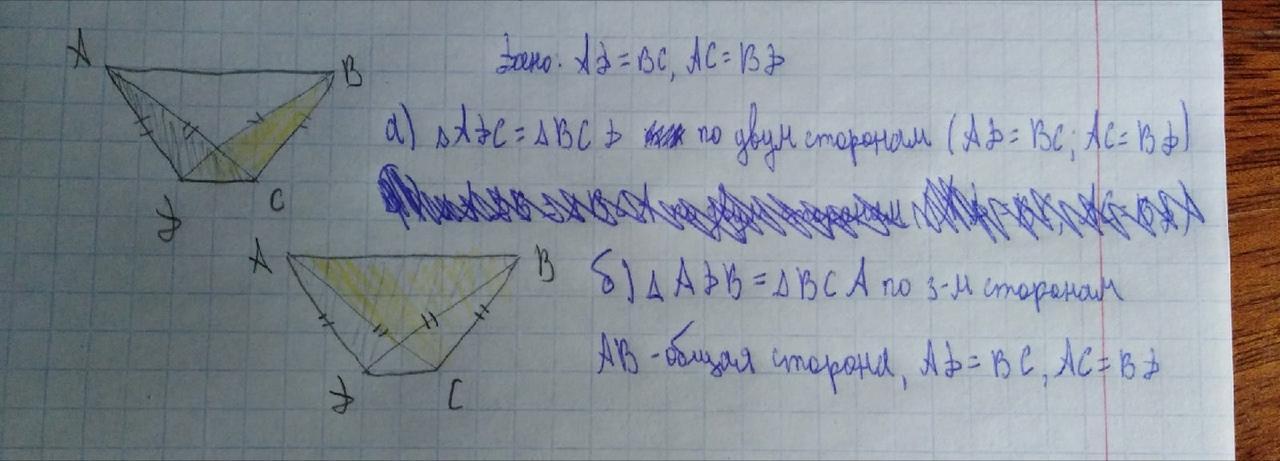 A
B
Дано: АД = ВС, АС = ВД
а) △АДС = △ВСД по двум сторонам (АД = ВС; АС = ВД)
Д
C
A
B
б) △АДВ = △ВСА по 3-м сторонам
АВ - общая сторона, АД = ВС, АС = ВД
Д
C